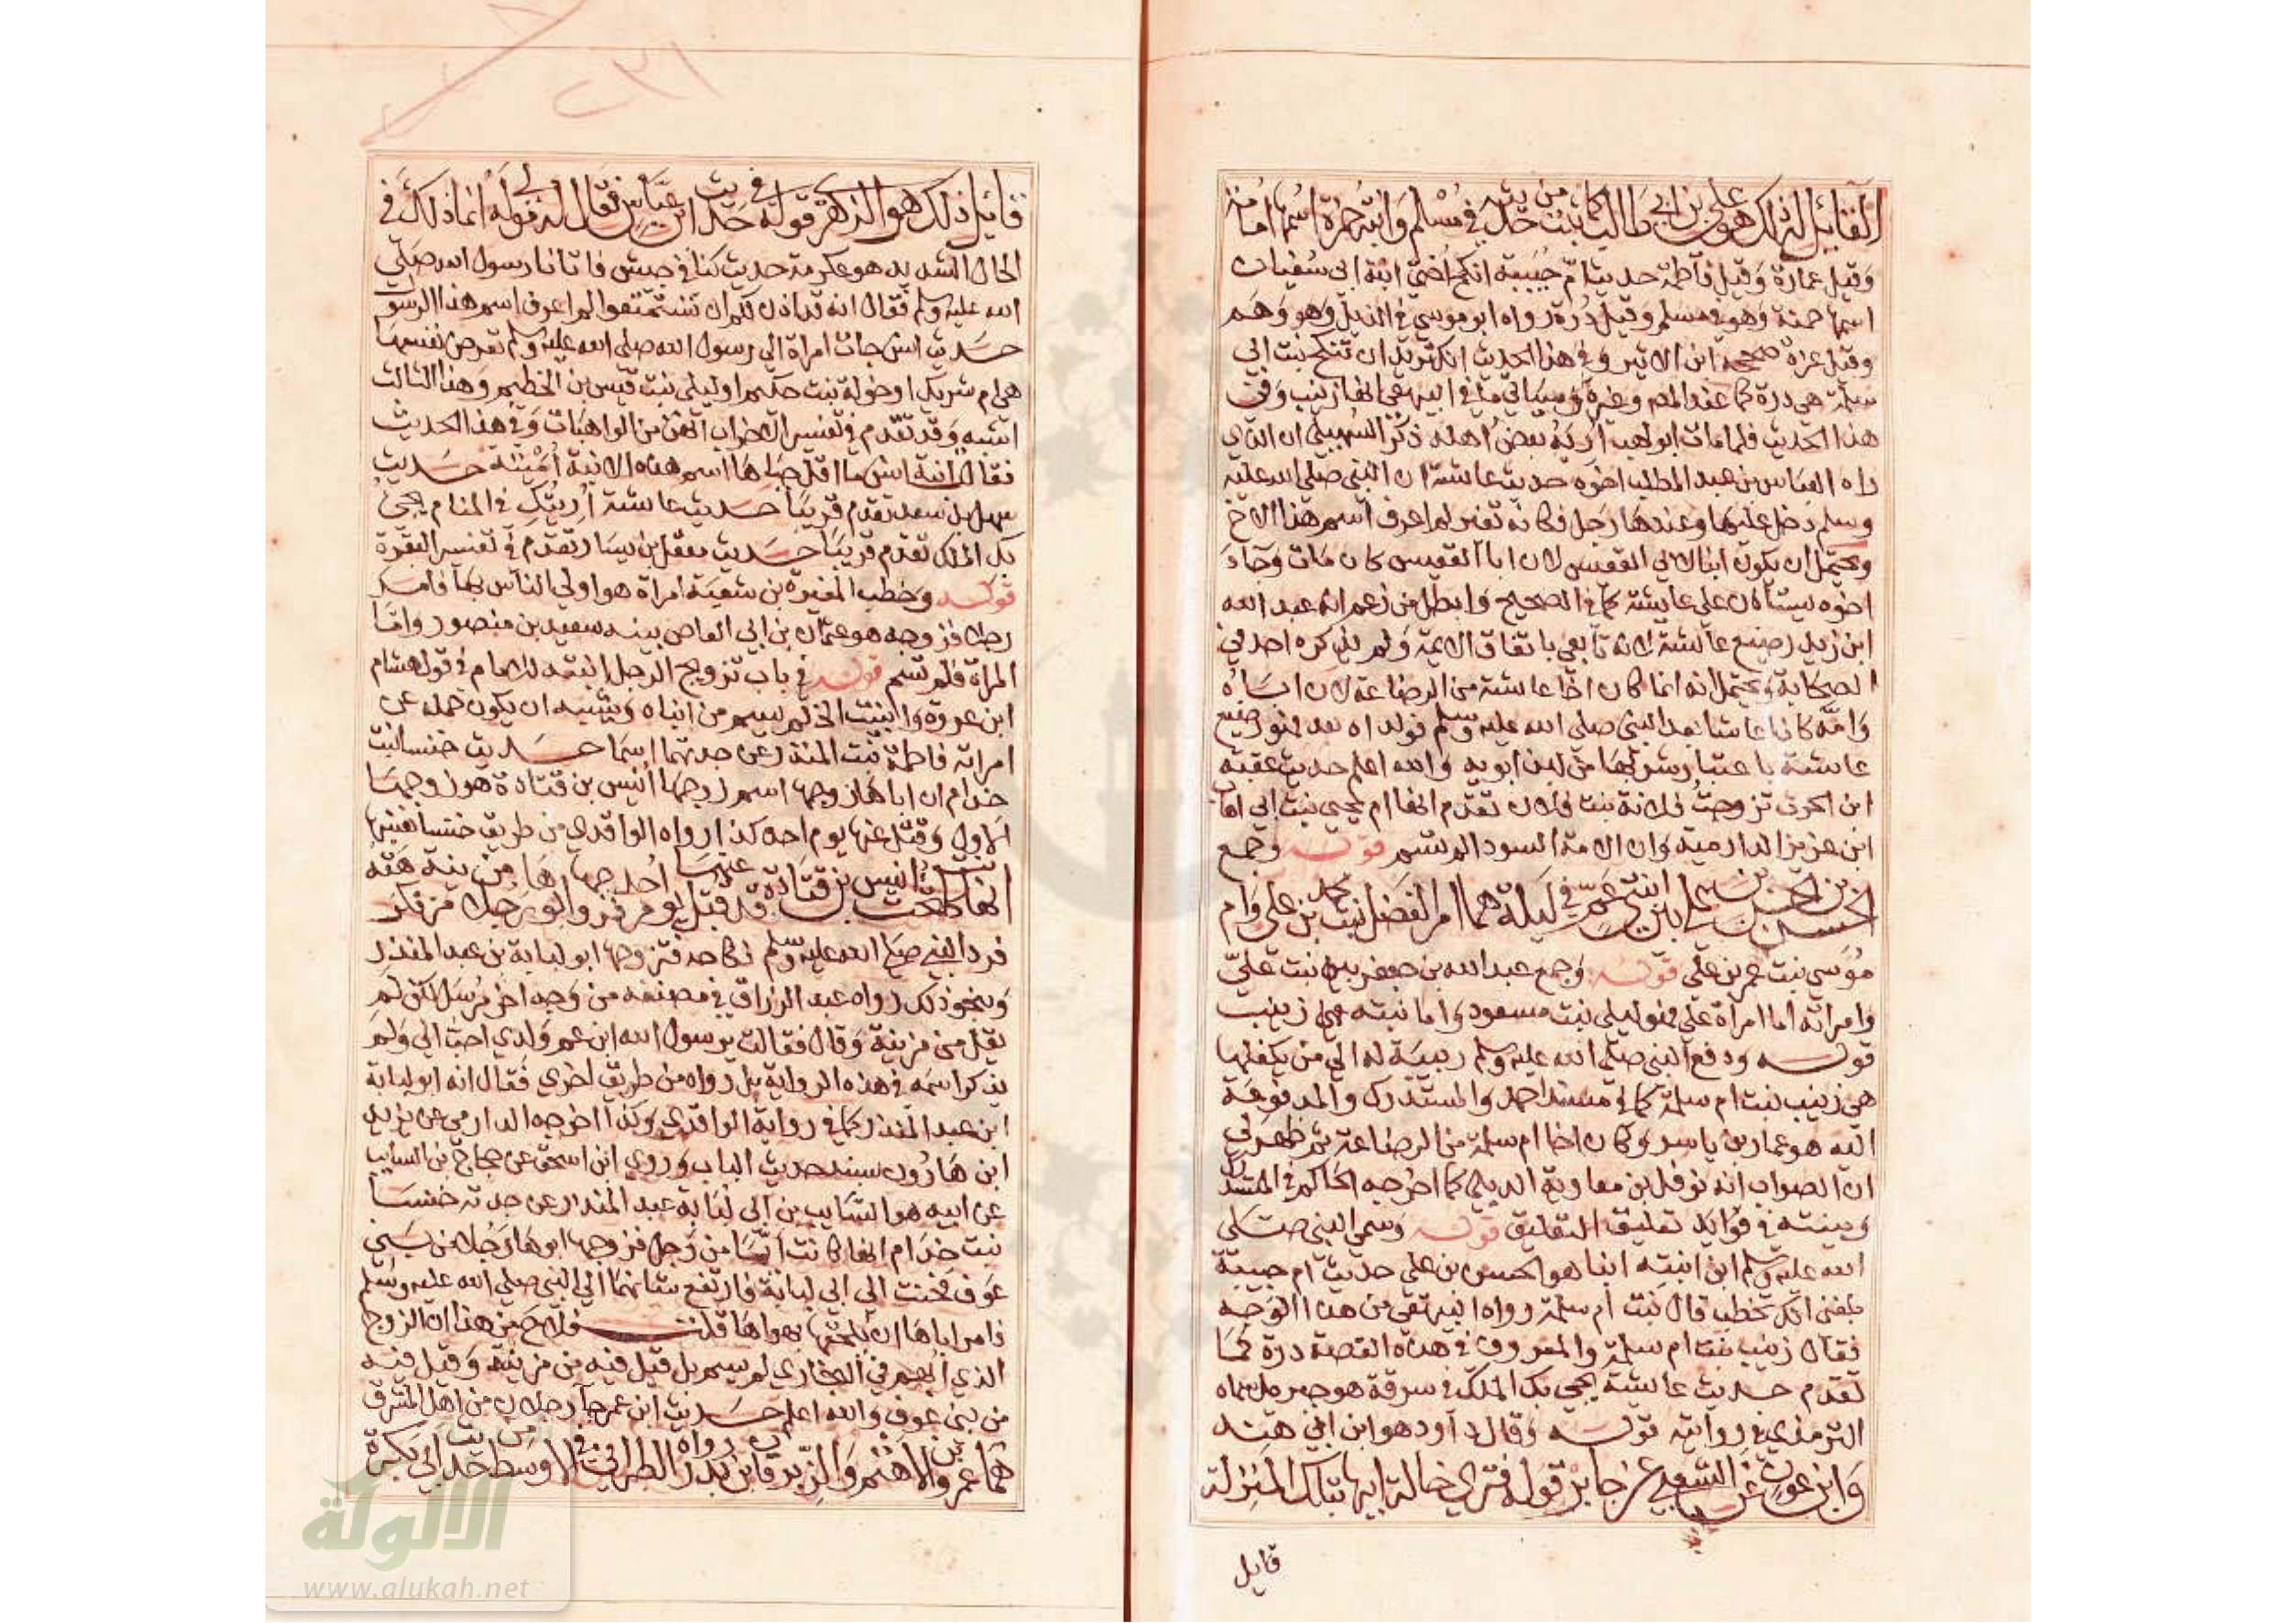 القائل لذلك هو علي بن أبي طالب كما ثبت من حديثه في مسلم وابنة حمزة اسمها امامة
وقيل عمارة وقيل فاطمة حديث ام حبيبة انكح اختي ابنة ابي سفيان
اسمها حمنة وهو في مسلم وقيل درة رواه ابو موسي في الذيل وهو وهم
وقيل عزة صححه ابن الاثير وفي هذا الحديث انك تريد ان تنكح بنت ابي
سلمة هي درة كما عند المص وغيره وسياتي ما في البيهقي انها زينب وفي
هذا الحديث فلما مات ابو لهب أريه بعض أهله ذكر السهيلي ان الذي
راه العباس بن عبد المطلب اخوه حديث عائشة ان النبي صلى الله عليه
وسلم دخل عليها وعندها رجل فكانه تغير لم اعرف اسم هذا الاخ
ويحتمل ان يكون ابنا لابي القعيس لان ابا القعيس كان مات وجاء
اخوه يستأذن على عايشة كما في الصحيح وابطل من زعم انه عبد الله
ابن زيد رضيع عائشة لانه تابعي باتفاق الايمة ولم يذكره احد في
الصحابة ويحتمل انه انما كان اخا عائشة من الرضاعة لان اباه
وامه كانا عاشا بعد النبي صلى الله عليه وسلم فولداه بعد فهو رضيع
عائشة باعتبار شربها من لبن ابويه والله اعلم حديث عقبة
ابن الحرث تزوجت فلانة بنت فلان تقدم انها ام يحيى بنت ابي اهاب
ابن عزيز الدارمية وان الامة السودا لم تسم قوله وجمع
الحسن بن الحسين بن علي بين ابنتي عم في ليلة هما ام الفضل بنت محمد بن علي وام
موسي بنت عمر بن علي قوله وجمع عبد الله بن جعفر بين بنت علي
وامراته اما امراة علي فهو ليلى بنت مسعود واما بنته فهي زينب
قوله ودفع النبي صلى الله عليه وسلم ربيبة له الى من يكفلها
هي زينب بنت ام سلمة كما في مسند احمد والمستدرك والمدفوعة
اليه هو عمار بن ياسر وكان اخا ام سلمة من الرضاعة ثم ظهر لي
ان الصواب انه نوفل بن معاوية الديلي كما اخرجه الحاكم في المستدرك
وبينته في فوايد تعليق التعليق قوله وسمي النبي صلى
الله عليه وسلم ابن ابنته ابنا هو الحسن بن علي حديث ام حبيبة
بلغني انك تخطب قال بنت ام سلمة رواه البيهقي من هذا الوجه
فقال زينب بنت ام سلمة والمعروف في هذه القصة درة كما
تقدم حديث عائشة يجي بك الملك في سرقة هو جبريل سماه
الترمذي في روايته قوله وقال داود هو ابن ابي هند
وابن عون عن الشعبي عن جابر قوله فنرى خالة ابيها بتلك المنزلة
قايل
٢٣١
قائل ذلك هو الزهري قوله في حديث ابن عباس فقال له مولى له انما ذلك في
الحال الشديد هو عكرمة حديث كنا في جيش فاتانا رسول الله صلى
الله عليه وسلم فقال انه قد اذن لكم ان تستمتعوا لم اعرف اسم هذا الرسول
حديث انس جات امراة الى رسول الله صلى الله عليه وسلم تعرض نفسها
هي ام شريك او خولة بنت حكيم او ليلى بنت قيس بن الخطيم وهذا الثالث
اشبه وقد تقدم في تفسير الاحزاب انهن من الواهبات وفي هذا الحديث
فقالت ابنة انس ما اقل حياها اسم هذه الابنة أمينة حديث
سهل بن سعد تقدم قريبا حديث عائشة أريتك في المنام يجي
بك الملك تقدم قريبا حديث معقل بن يسار تقدم في تفسير البقرة
قوله وخطب المغيرة بن شعبة امراة هو اولي الناس بها فامر
رجلا فزوجه هو عثمان بن ابي العاص بينه سعيد بن منصور واما
المراة فلم تسم قوله في باب تزويج الرجل ابنته للامام في قول هشام
ابن عروة وانبئت الخ لم يسم من انباه ويشبه ان يكون حمله عن
امراته فاطمة بنت المنذر عن جدتها اسما حديث خنسا بنت
خذام ان اباها زوجها اسم زوجها انيس بن قتادة هو زوجها
الاول وقتل عنها يوم احد كذا رواه الواقدي من طريق خنسا نفسها
انها كانت تحت انيس بن قتادة فقتل عنها يوم احد فزوجها ابوها رجلا من مزينة فكرهته
فرد النبي صلى الله عليه وسلم نكاحه فتزوجها ابو لبابة بن عبد المنذر
ونحو ذلك رواه عبد الرزاق في مصنفه من وجه اخر مرسل لكن لم
يقل من مزينة وقال فقالت يرسول الله ابن عم ولدي احب الي ولم
يذكر اسمه في هذه الرواية بل رواه من طريق اخري فقال انه ابو لبابة
ابن عبد المنذر كما في رواية الواقدي وكذا اخرجه الدارمي عن يزيد
ابن هارون بسند حديث الباب وروي ابن اسحق عن حجاج بن السايب
عن ابيه هو السايب بن ابي لبابة عبد المنذر عن جدته خنسا
بنت خذام انها كانت أيما من رجل فزوجها ابوها رجلا من بني
عوف فحنت الى ابي لبابة فارتفع شانهما الى النبي صلى الله عليه وسلم
فامر اباها ان يلحقها بهواها قلت فلاح من هذا ان الزوج
الذي أبهم في البخاري لم يسم بل قيل فيه من مزينة وقيل فيه
من بني عوف والله اعلم حديث ابن عمر جآ رجلان من اهل المشرق
هما عمرو بن الاهتم والزبرقان بن بدر رواه الطبراني في الاوسط من حديث ابي بكرة
الألوكة
www.alukah.net